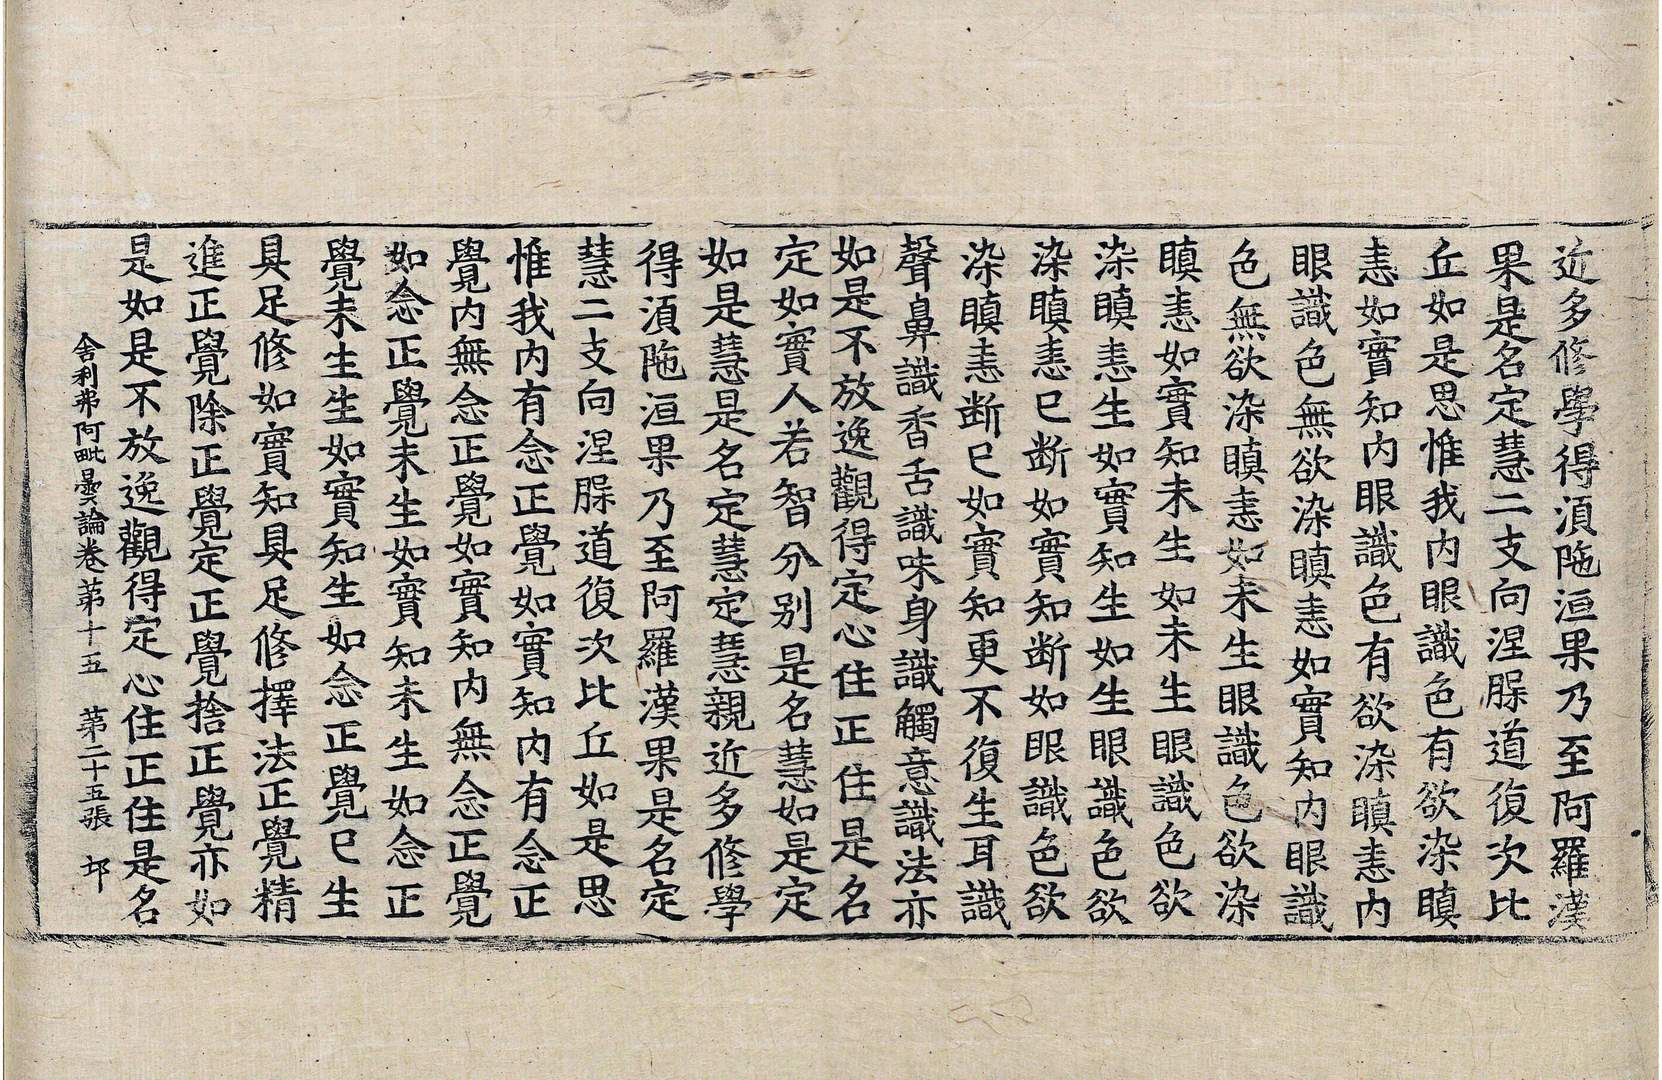 近多修學得湏陁洹果乃至阿羅漢
果是名定慧二支向涅脲道復次比
丘如是思惟我内眼識色有欲染瞋
恚如實知内眼識色有欲染瞋恚内
眼識色無欲染瞋恚如實知内眼識
色無欲染瞋恚如未生眼識色欲染
瞋恚如實知未生如未生眼識色欲
染瞋恚生如實知生如生眼識色欲
染瞋恚已断如實知断如眼識色欲
染瞋恚断已如實知更不復生耳識
聲鼻識香舌識味身識觸意識法亦
如是不放逸觀得定心住正住是名
定如實人若智分别是名慧如是定
如是慧是名定慧定慧親近多修學
得湏陁洹果乃至阿羅漢果是名定
慧二支向涅脲道復次比丘如是思
惟我内有念正覺如實知内有念正
覺内無念正覺如實知内無念正覺
如念正覺未生如實知未生如念正
覺未生生如實知生如念正覺已生
具足修如實知具足修擇法正覺精
進正覺除正覺定正覺捨正覺亦如
是如是不放逸觀得定心住正住是名
舍利弗阿毗曇論卷苐十五 苐二十五張 邙